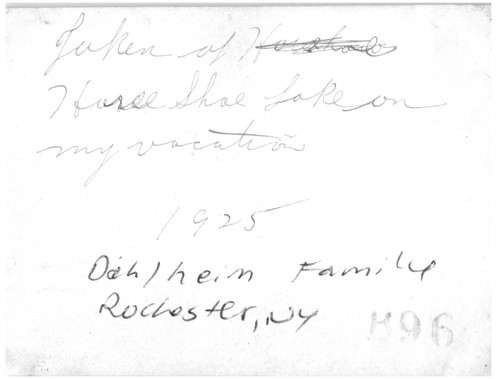 Taken of
Horse Shoe Lake on
my vacation
1925
Dahlheim Family
Rochester, NY
896